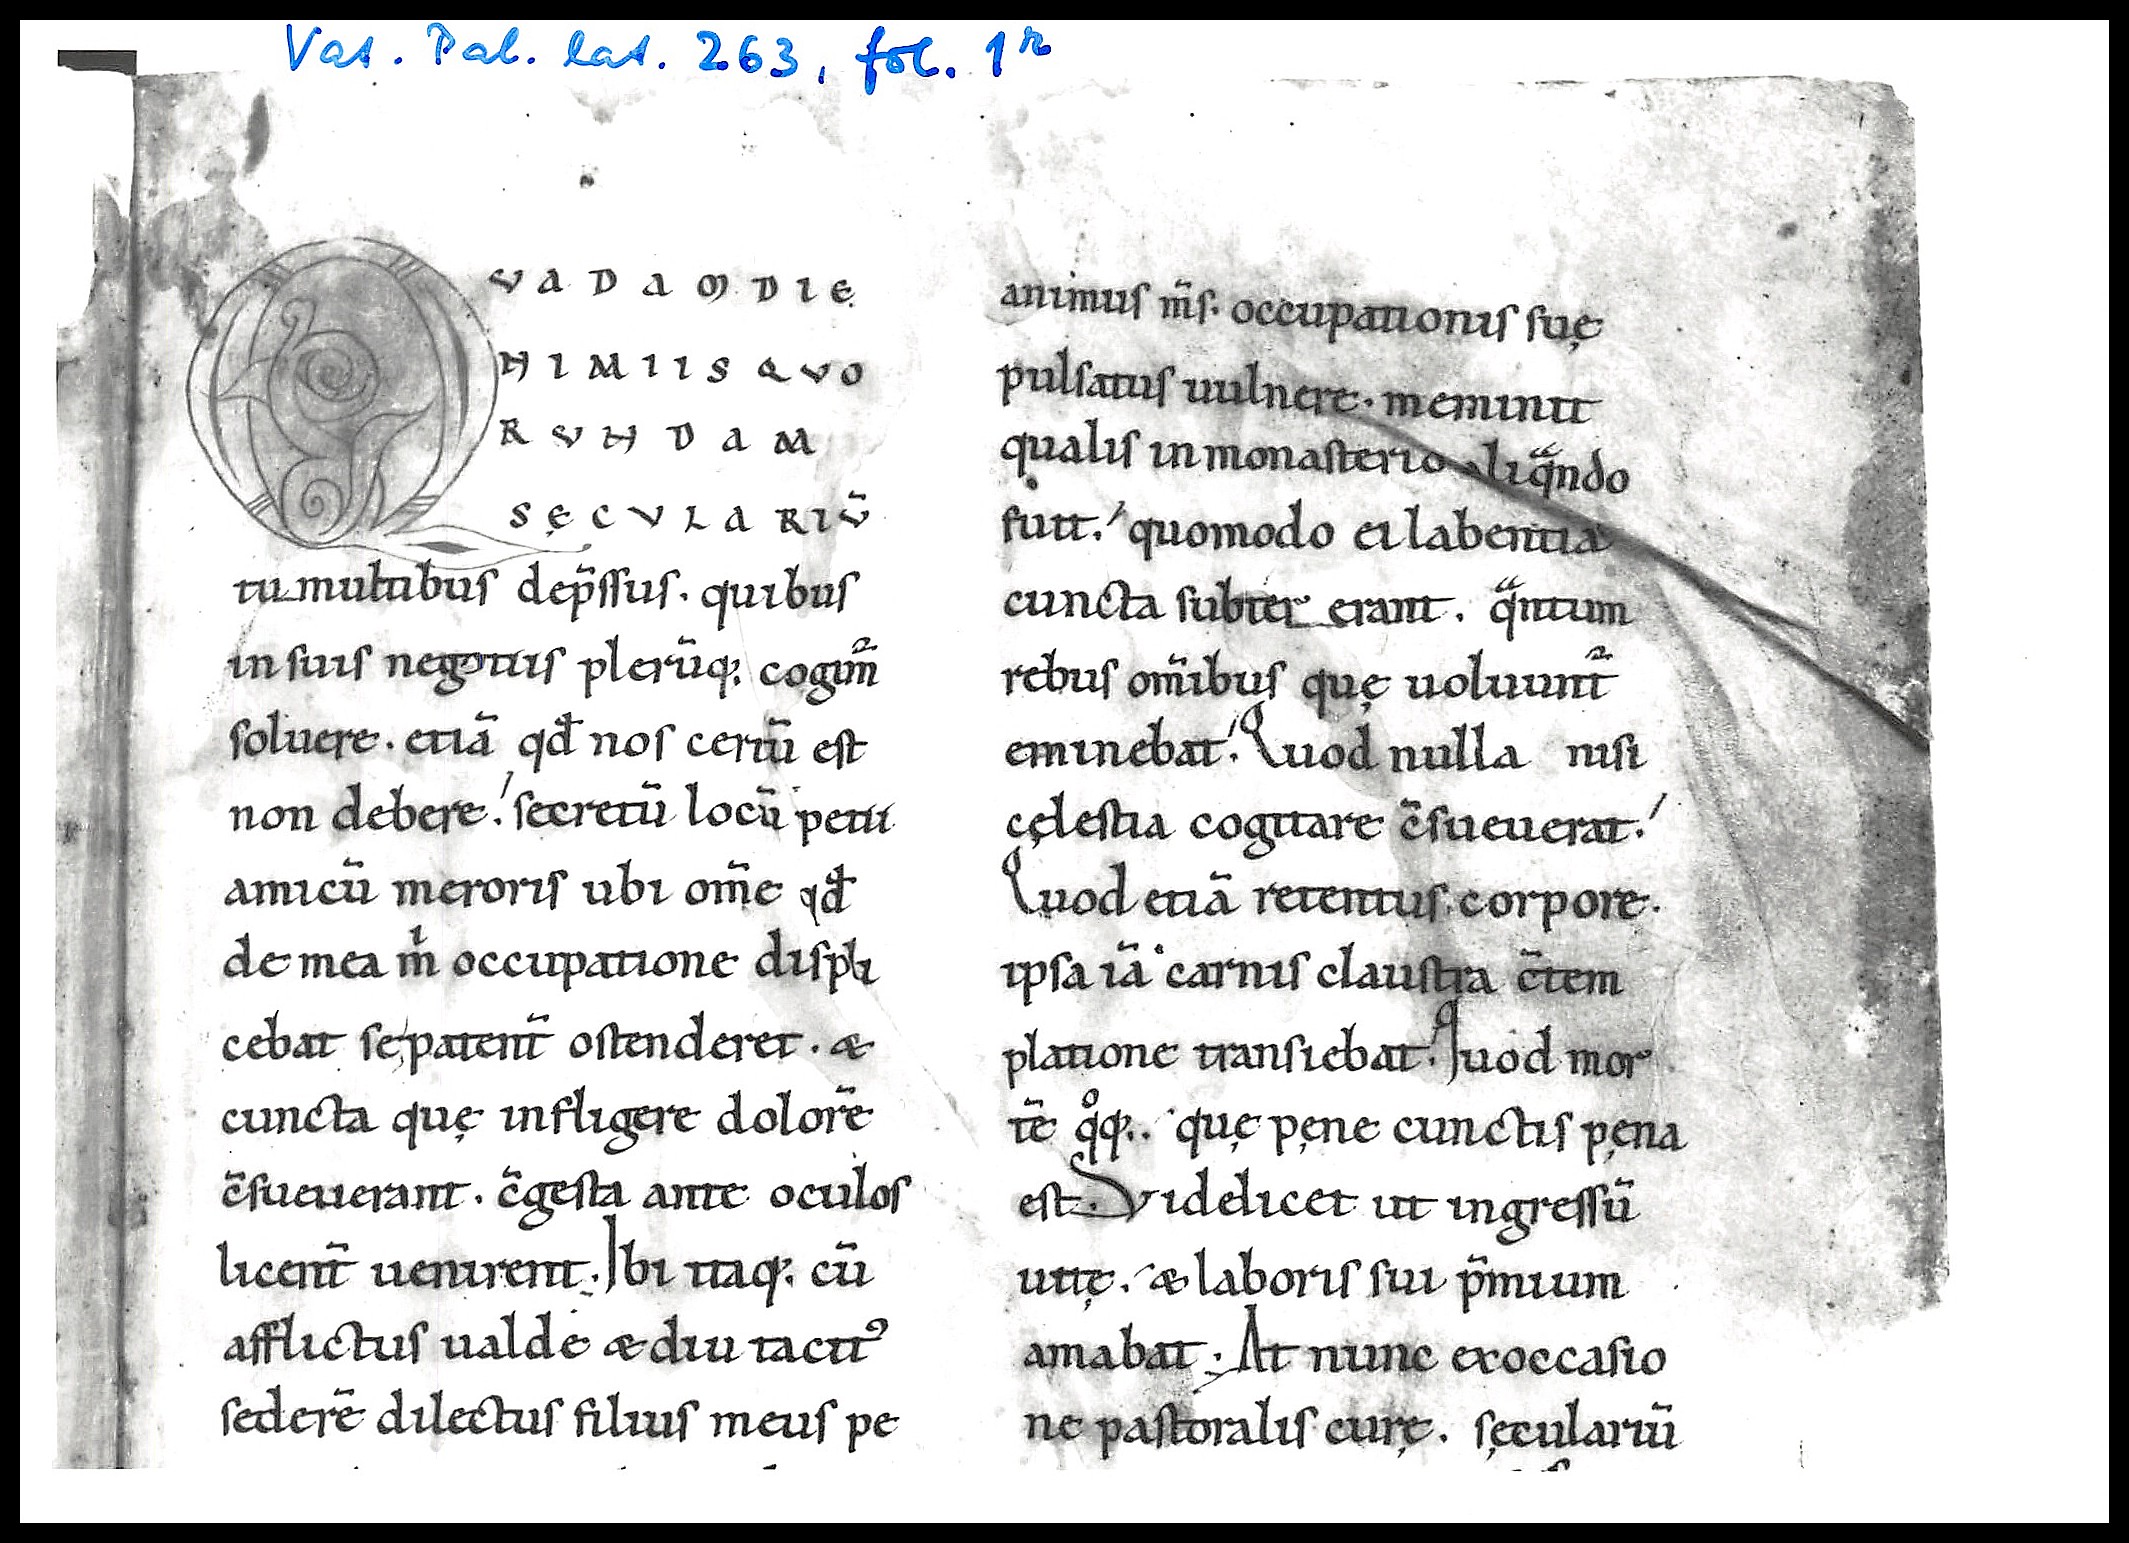 Vat. Pal. lat. 263, fol. 1r
QVADAM DIE
NIMIIS QVO
RVNDAM
SĘCVLARIV̄
tumultibus dep̄ssus. quibus
in suis negotiis plerūq; cogim̄᷑
soluere. etiā qđ nos certū est
non debere. secretū locū petii
amicū meroris ubi om̄e qđ
de mea m̍ occupatione displi
cebat se patent̄ ostenderet. &
cuncta quę infligere dolorē
c̄sueuerant. c̄gesta ante oculos
licent̄ uenirent. Ibi itaq; cū
afflictus ualde & diu tacitꝰ
sederē dilectus filius meus pe
animus m̄s. occupationis suę
pulsatus uulnere. meminit
qualis in monasterio aliqᷓndo
fuit. quomodo ei labentia
cuncta subter erant. qᷓntum
rebus om̄ibus quę uoluunt᷑
eminebat. Quod nulla nisi
cęlestia cogitare c̄sueuerat.
Quod etiā retentus corpore.
ipsa iā carnis claustra c̄tem
platione transiebat. Quod mor
tē qͦq;. quę pęne cunctis pęna
est. Videlicet ut ingressū
uitę. & laboris sui p̄mium
amabat. At nunc ex occasio
ne pastoralis curę. sęculariū